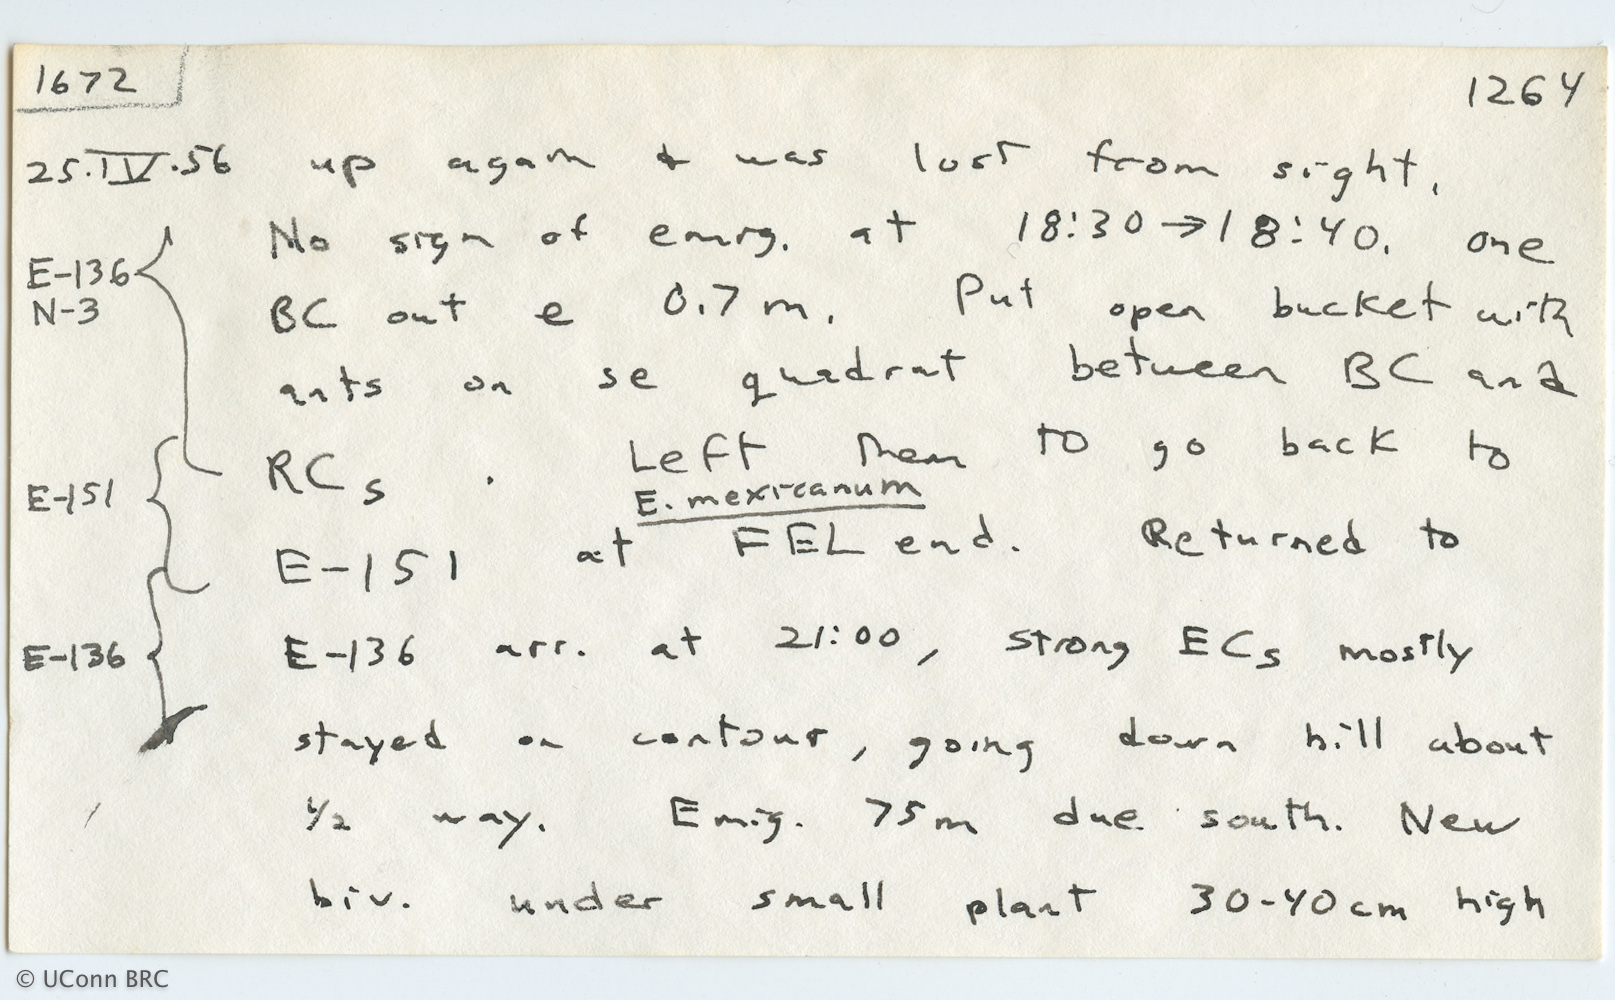 1672
1264
25.IV.56 up again & was lost from sight.
No sign of emig. at 18:30→18:40. one
E-136
N-3
BC out e 0.7 m. Put open bucket with
ants on se quadrat between BC and
RCs. Left them to go back to
E. mexicanum
E-151
E-151 at FEL end. Returned to
E-136
E-136 arr. at 21:00, strong ECs mostly
stayed on contour, going down hill about
1/2 way. Emig. 75m due south. New
biv. under small plant 30-40cm high
© UConn BRC